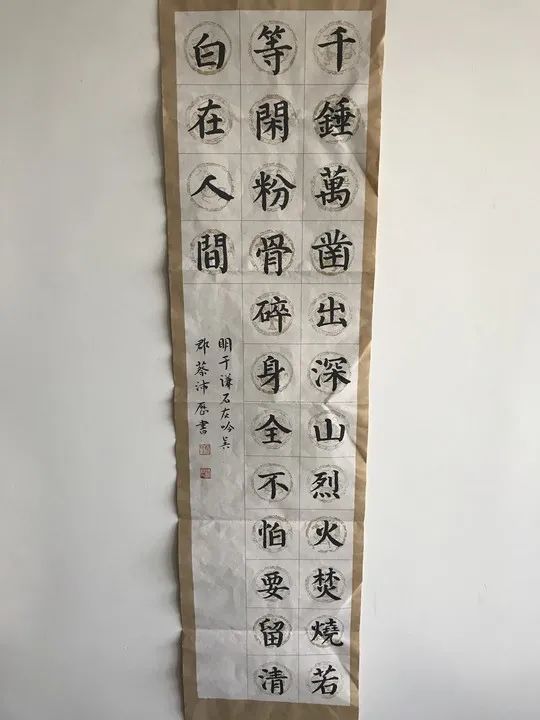 千錘萬凿出深山烈火焚燒若
等閑粉骨碎身全不怕要留清
白在人間
明于谦石灰吟吴
郡蔡沛厚書